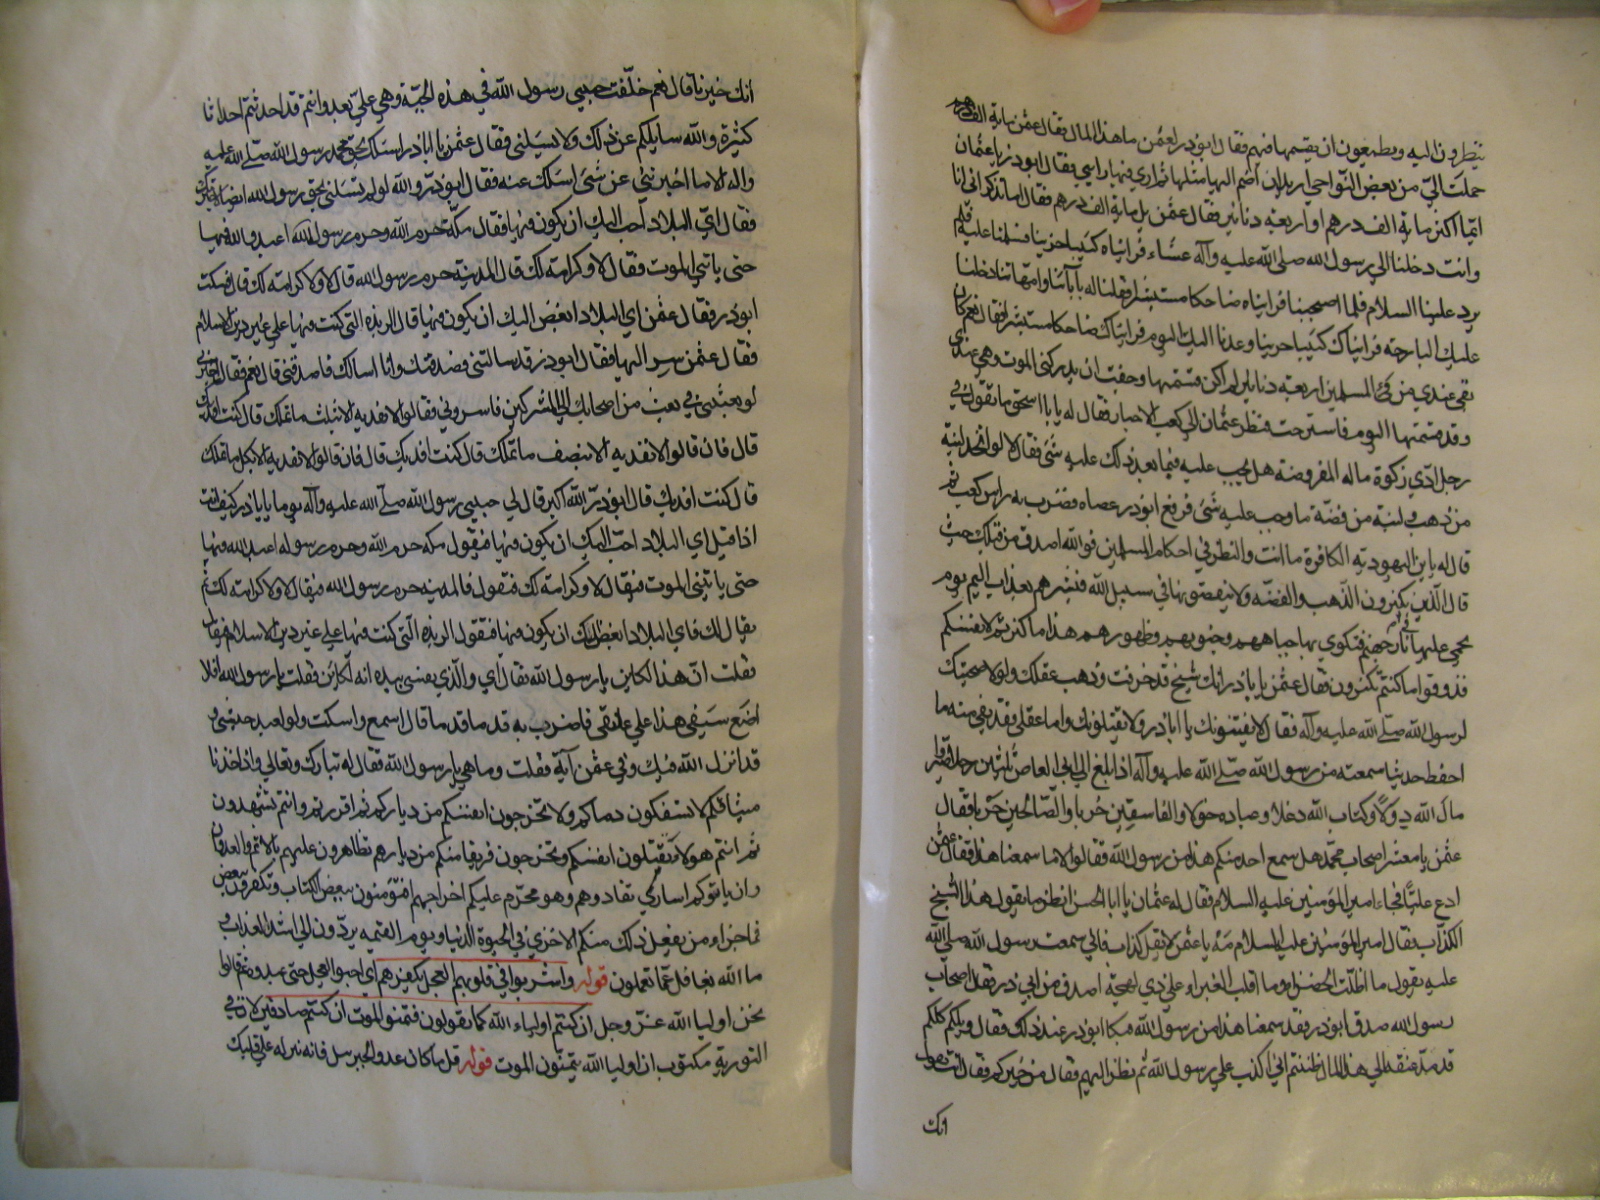 ينظرون اليه ويطمعون ان يقسمها فيهم فقال ابوذر لعثمن ما هذا المال فقال عثمن مائة الف درهم
حملت اليّ من بعض النواحي اريد ان اضم اليها مثلها ثم اري فيها رايي فقال ابوذر يا عثمان
ايّما اكثر مائة الف درهم او اربعة دنانير فقال عثمن بل مائة الف درهم فقال اما تذكر اني انا
وانت دخلنا الي رسول الله صلى الله عليه وآله عشاء فرايناه كئيبا حزينا فسلمنا عليه فلم
يرد علينا السلام فلما اصبحنا فرايناه ضاحكا مستبشرا فقلنا له بآبائنا وامهاتنا دخلنا
عليك البارحة فرايناك كئيبا حزينا وعدنا اليك اليوم فرايناك ضاحكا مستبشرا فقال نعم كان
بقي عندي من فئ المسلمين اربعة دنانير لم اكن قسمتها وخفت ان يدركني الموت وهي عندي
وقد قسمتها اليوم فاسترحت فنظر عثمان الي كعب الاحبار فقال له يا با اسحق ما تقول في
رجل ادّي زكوة ماله المفروضة هل يجب عليه فيما بعد ذلك عليه شئ فقال لا لو اتخذ لبنة
من ذهب ولبنة من فضة ما وجب عليه شئ فرفع ابوذر عصاه وضرب به راس كعب ثم
قال له يا بن اليهودية الكافرة ما انت والنظر في احكام المسلمين فوالله اصدق من قولك حيث
قال الذين يكنزون الذهب والفضة ولا ينفقونها في سبيل الله فبشرهم بعذاب اليم يوم
يحمي عليها نار جهنم فتكوي بها جباههم وجنوبهم وظهورهم هذا ما كنزتم لانفسكم
فذوقوا ما كنتم تكنزون فقال عثمن يا باذر انك شيخ قد خرفت وذهب عقلك ولولا صحبتك
لرسول الله صلّى الله عليه وآله فقال لا يفتنونك يا اباذر ولا يقتلونك واما عقلي فقد بقي منه ما
احفظ حديثا سمعته من رسول الله صلّى الله عليه وآله اذا بلغ ال ابي العاص ثلثين رجلا صيّروا
مال الله دولا وكتاب الله دغلا وعباده خولا والفاسقين حزبا والصالحين حربا فقال
عثمن يا معشر اصحاب محمد هل سمع احد منكم هذا من رسول الله فقالوا لا ما سمعنا هذا فقال عثمن
ادع عليّا فجاء امير المؤمنين عليه السلام فقال له عثمان يا ابا الحسن انظر ما يقول هذا الشيخ
الكذّاب فقال امير المؤمنين عليه السلام مه يا عثمن لا تقل كذاب فاني سمعت رسول الله صلى الله
عليه يقول ما اظلّت الخضراء وما اقلت الغبراء علي ذي لهجة اصدق من ابي ذر فقال اصحاب
رسول الله صدق ابوذر فقد سمعنا هذا من رسول الله فبكا ابوذر عند ذلك فقال ويلكم كلكم
قد مدّ عنقه الي هذا المال ظننتم اني اكذب علي رسول الله ثم نظر اليهم فقال من خيركم فقال انت تقول
انك
انك خيرنا قال نعم خلّفت حبيبي رسول الله في هذه الجبّة وهي عليّ بعد وانتم قد احدثتم احداثا
كثيرة والله سايلكم عن ذلك ولا يسألني فقال عثمن يا اباذر اسئلك بحق محمد رسول الله صلّى الله عليه
واله الا ما اخبرتني عن شئ اسئلك عنه فقال ابوذر والله لو لم تسئلني بحق رسول الله ايضا لاخبرتك
فقال ايّ البلاد احب اليك ان يكون فيها فقال مكة حرم الله وحرم رسول الله اعبد الله فيها
حتى ياتيني الموت فقال لا ولا كرامة لك قال المدينة حرم رسول الله قال لا ولا كرامة لك قال فسكت
ابوذر فقال عثمن اي البلاد ابغض اليك ان يكون فيها قال الربذه التي كنت فيها علي غير دين الاسلام
فقال عثمن سر اليها فقال ابوذر قد سالتني فصدقتك وانا اسالك فاصدقني قال نعم فقال اخبرني
لو بعثتني في بعث من اصحابك الي المشركين فاسروني فقالوا لا نفديه الا بثلث ما تملك قال كنت افديك
قال فان قالوا لا نفديه الا بنصف ما تملك قال كنت افديك قال فان قالوا لا نفديه الا بكل ما تملك
قال كنت افديك قال ابوذر الله اكبر قال لي حبيبي رسول الله صلّى الله عليه وآله يوما يا باذر كيف انت
اذا قيل اي البلاد احبّ اليك ان يكون فيها فيقول مكه حرم الله وحرم رسوله اعبد الله فيها
حتى ياتيني الموت فيقال لا ولا كرامة لك فتقول فالمدينه حرم رسول الله فيقال لا ولا كرامة لك ثم
يقال لك فاي البلاد ابغض اليك ان يكون فيها فتقول الربذه الّتي كنت فيها علي غير دين الاسلام فيقال
فقلت انّ هذا لكاين يا رسول الله فقال اي والّذي نفسي بيده انه لكاين فقلت يا رسول الله افلا
اضع سيفي هذا علي عاتقي فاضرب به قدما قدما قال اسمع واسكت ولو لعبد حبشي و
قد انزل الله فيك وفي عثمن آية فقلت وما هي يا رسول الله فقال له تبارك وتعالي واذ اخذنا
ميثاقكم لا تسفكون دماكم ولا تخرجون انفسكم من دياركم ثم اقررتم وانتم تشهدون
ثم انتم هولا تقتلون انفسكم وتخرجون فريقا منكم من ديارهم تظاهرون عليهم بالاثم والعدوان
وان ياتوكم اساري تفادوهم وهو محرّم عليكم اخراجهم افتؤمنون ببعض الكتاب وتكفرون ببعض
فما جزاء من يفعل ذلك منكم الا خزي في الحيوة الدنيا ويوم القيمه يردّون الي اشد العذاب و
ما الله بغافل عمّا تعملون قوله واشربوا في قلوبهم العجل بكفرهم اي احبوا العجل حتى عبدوه ثم قالوا
نحن اوليا الله عزّ وجل ان كنتم اولياء الله كما يقولون فتمنو الموت ان كنتم صادقين لانه في
التورية مكتوب ان اوليا الله يتمنّون الموت قوله قل من كان عدو الجبريل فانه نزله علي قلبك